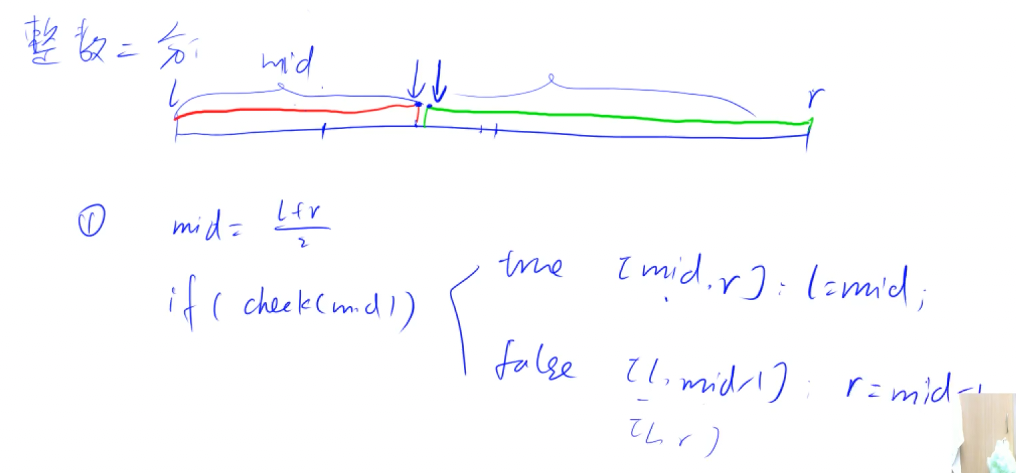 整数二分
mid
l
r
① mid = l+r / 2
if ( check(mid) )
true [mid, r] : l=mid;
false [l, mid-1] : r=mid-1
[l, r)